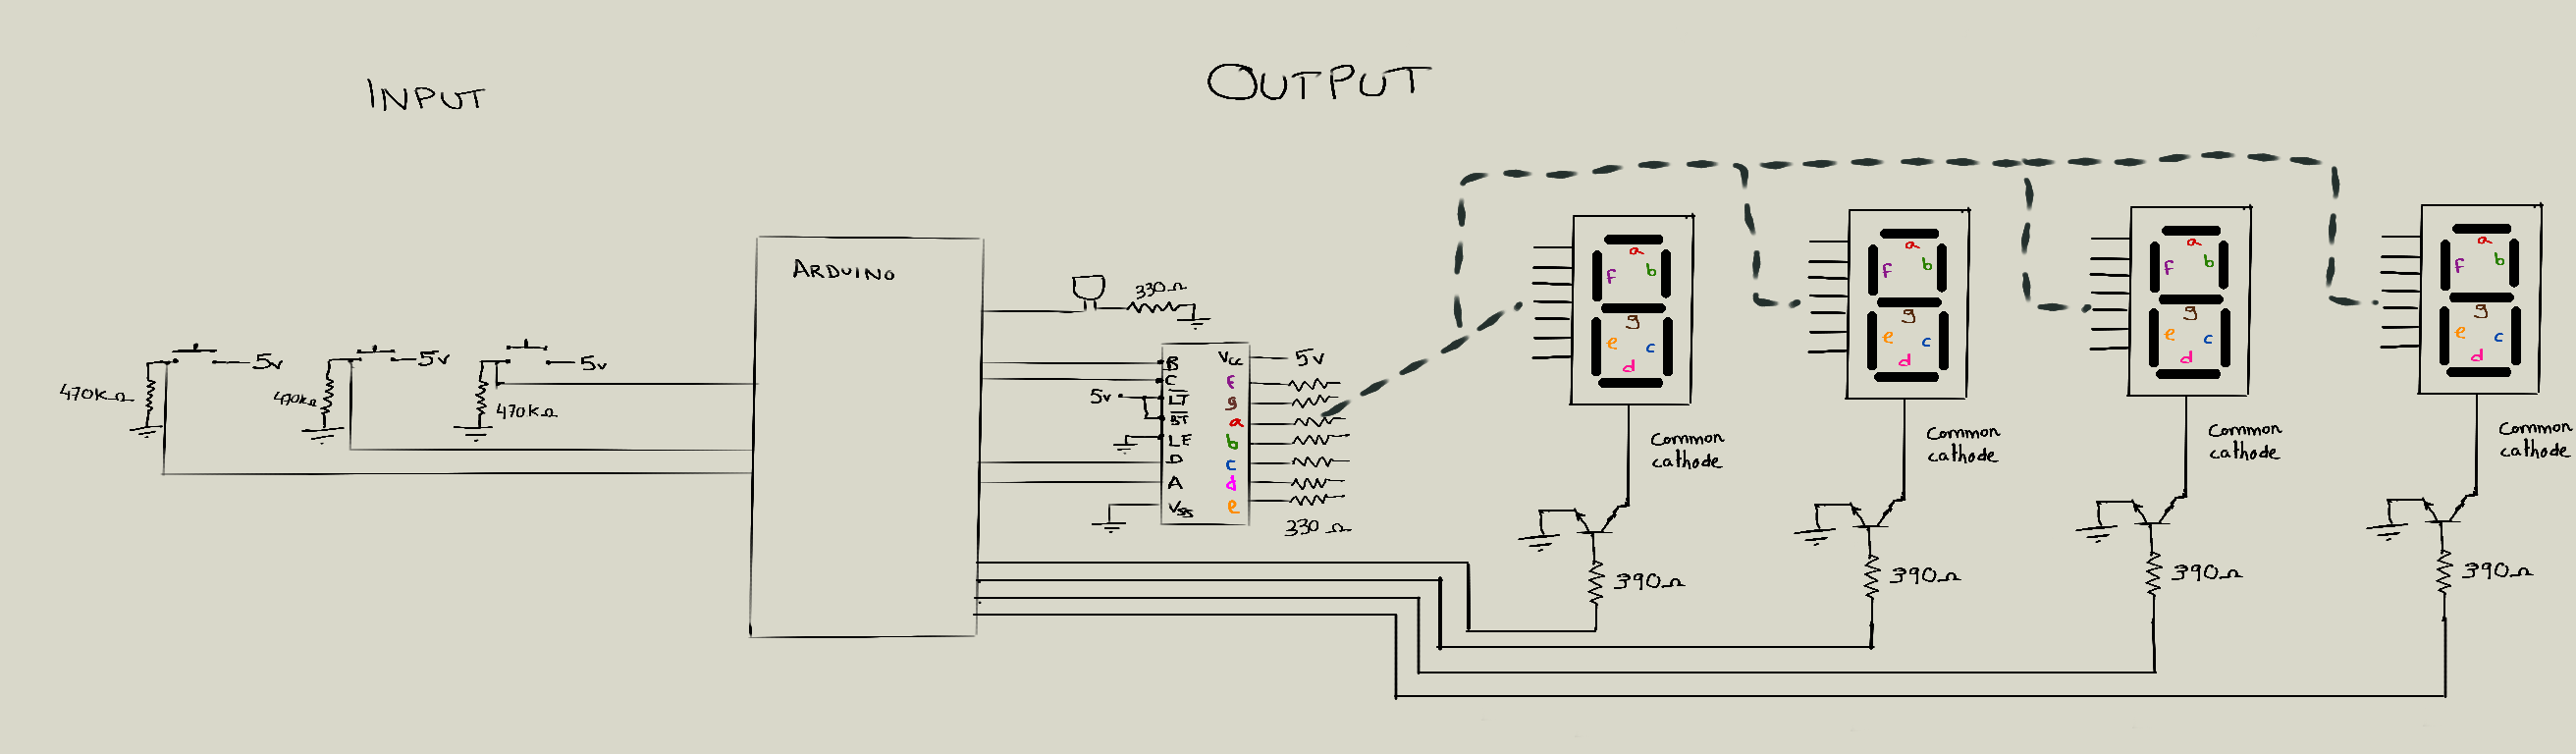 INPUT
OUTPUT
ARDUINO
470KΩ
5v
470KΩ
5v
470KΩ
5v
330Ω
B
C
5v
LT
BT
LE
D
A
Vss
Vcc
5v
f
g
a
b
c
d
e
330Ω
a
f
b
g
e
c
d
Common
cathode
390Ω
a
f
b
g
e
c
d
Common
cathode
390Ω
a
f
b
g
e
c
d
Common
cathode
390Ω
a
f
b
g
e
c
d
Common
cathode
390Ω